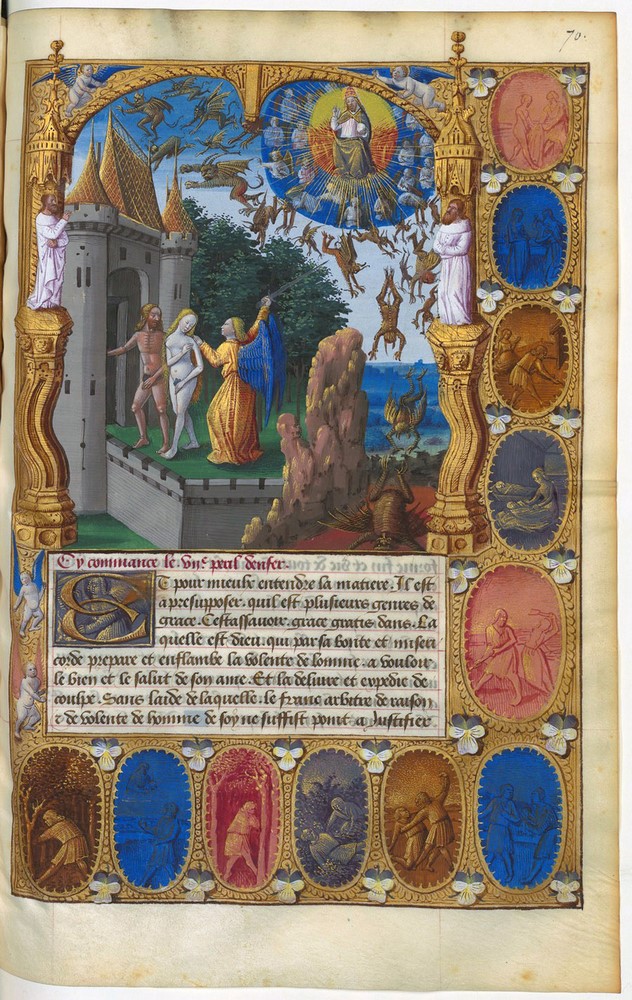 70.
Cy commance le .vije. peril denfer.
Et pour mieulx entendre la matiere. Il est
a presupposer. quil est plusieurs genres de
grace. Cestassavoir. grace gratis dans. La
quelle est dieu. qui par sa bonte et miseri
corde prepare et enflambe la volente de lomme. a vouloir
le bien et le salut de son ame. Et la delivre et expedie de
coulpe. Sans laide de laquelle. le franc arbitre de raison
& de volente de homme de soy ne suffist point a Justifier